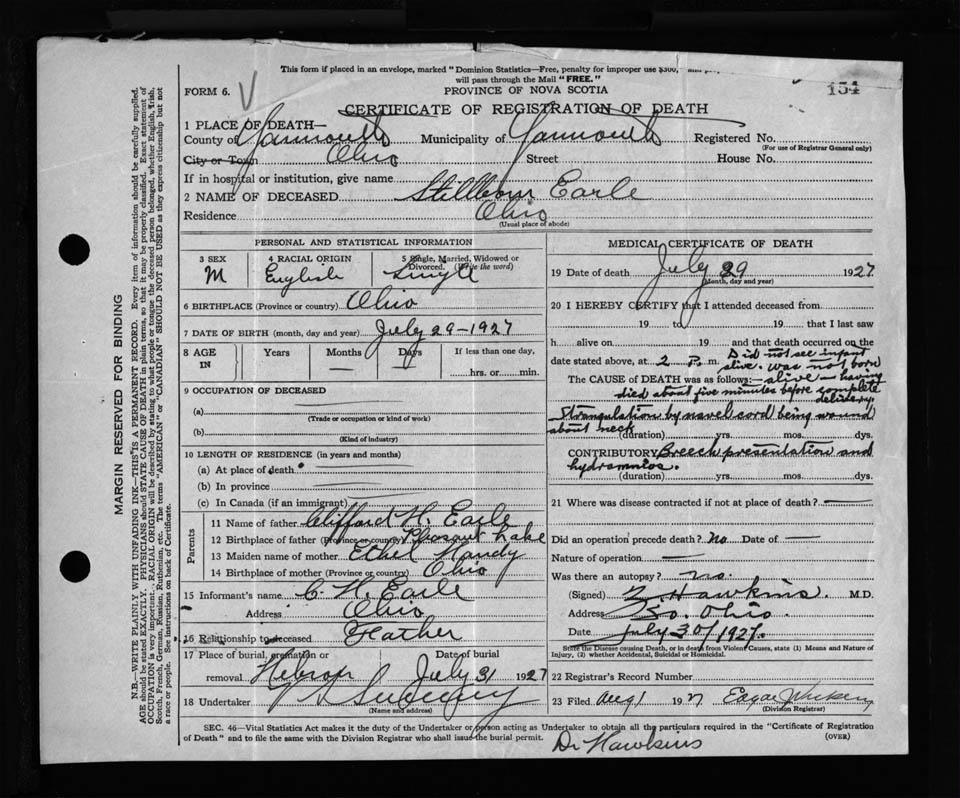 This form if placed in an envelope, marked "Dominion Statistics—Free, penalty for improper use $300,
will pass through the Mail "FREE."
FORM 6. PROVINCE OF NOVA SCOTIA 154
CERTIFICATE OF REGISTRATION OF DEATH
1 PLACE OF DEATH—
County of Yarmouth Municipality of Yarmouth Registered No.
(For use of Registrar General only)
City or Town Ohio Street House No.
If in hospital or institution, give name
2 NAME OF DECEASED Stillborn Earle
Residence Ohio
(Usual place of abode)
PERSONAL AND STATISTICAL INFORMATION
3 SEX 4 RACIAL ORIGIN 5 Single, Married, Widowed or Divorced. (Write the word)
M English Single
6 BIRTHPLACE (Province or country) Ohio
7 DATE OF BIRTH (month, day and year) July 29-1927
8 AGE IN Years Months Days If less than one day,
hrs. or min.
9 OCCUPATION OF DECEASED
(a)
(Trade or occupation or kind of work)
(b)
(Kind of industry)
10 LENGTH OF RESIDENCE (in years and months)
(a) At place of death
(b) In province
(c) In Canada (if an immigrant)
Parents
11 Name of father Clifford H. Earle
12 Birthplace of father (Province or country) Pleasant Lake
13 Maiden name of mother Ethel Handy
14 Birthplace of mother (Province or country) Ohio
15 Informant's name C. H. Earle
Address Ohio
16 Relationship to deceased Father
17 Place of burial, cremation or Date of burial
removal Hebron July 31 1927
18 Undertaker
(Name and address)
MEDICAL CERTIFICATE OF DEATH
19 Date of death July 29 1927
(Month, day and year)
20 I HEREBY CERTIFY that I attended deceased from
19 to 19 that I last saw
h alive on 19 and that death occurred on the
date stated above, at 2 P. m. Did not see infant
alive. Was not born
The CAUSE OF DEATH was as follows:— alive — having
died about five minutes before complete
delivery.
Strangulation by navel cord being wound
about neck
(duration) yrs. mos. dys.
CONTRIBUTORY Breech presentation and
hydramnios.
(duration) yrs. mos. dys.
21 Where was disease contracted if not at place of death?
Did an operation precede death? No Date of
Nature of operation
Was there an autopsy? no.
(Signed) Z. Hawkins. M.D.
Address So. Ohio.
Date July 30/1927.
State the Disease causing Death, or in deaths from Violent Causes, state (1) Means and Nature of
Injury, (2) whether Accidental, Suicidal or Homicidal.
22 Registrar's Record Number
23 Filed Aug 1 1927 Edgar
(Division Registrar)
SEC. 46—Vital Statistics Act makes it the duty of the Undertaker or person acting as Undertaker to obtain all the particulars required in the "Certificate of Registration
of Death" and to file the same with the Division Registrar who shall issue the burial permit. (OVER)
Dr Hawkins
MARGIN RESERVED FOR BINDING
N.B.—WRITE PLAINLY WITH UNFADING INK—THIS IS A PERMANENT RECORD. Every item of information should be carefully supplied.
AGE should be stated EXACTLY. PHYSICIANS should STATE CAUSE OF DEATH in plain terms, so that it may be properly classified. Exact statement of
OCCUPATION is very important. RACIAL ORIGIN will be described by stating to what people or tongue the deceased person belonged, whether English, Irish,
Scotch, French, German, Russian, Ruthenian, etc. The terms "AMERICAN" or "CANADIAN" SHOULD NOT BE USED as they express citizenship but not
a race or people. See instructions on back of Certificate.